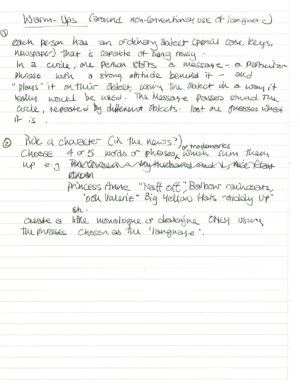 Warm-Ups (around non-conventional use of language)
①
each person has an ordinary object (pencil case, keys,
newspaper) that is capable of being noisy.
In a circle, one person starts a message - a particular
phrase with a strong attitude behind it - and
"plays" it on their object using the object in a way it
really would be used. The message passes round the
circle, repeated by different objects. Last one guesses what
it is.
② Pick a character (in the news?)
or trademarks
Choose 4 or 5 words or phrases, which sum them
up e.g
Princess Anne "Naff off", Barbour raincoats,
Big Yellow Hats
create a little monologue or dialogue ONLY using
the phrases chosen as the 'language'.